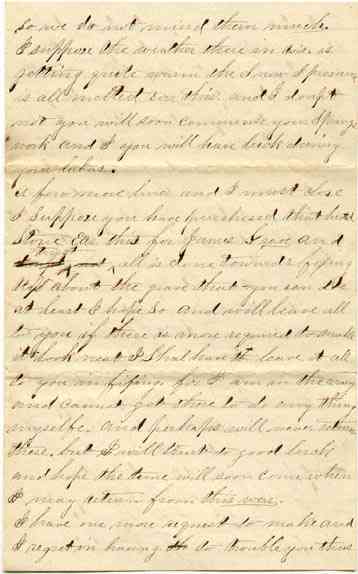 so we do not mind them much.
I suppose the weather there in is
getting quite warm the snow I presume
is all melted ere this. and I doubt
not you will soon commence your Spring
work and I you will have luck during
your labor.
a few more lines and I must close
I suppose you have purchased that
Stone Eas that for James Grave and
all is done towards fixing
up about the grave that you can do
at least I hope so and will leave all
to you if there is more required to make
it look neat I shal have to leave it all
to you for I am in the army
and cannot get there to do any thing
myselfe. and perhaps will never return
there. but I will trust to good luck
and hope the time will soon come when
I may return from this war.
I have one more request to make and
I regret in having to do trouble you thus